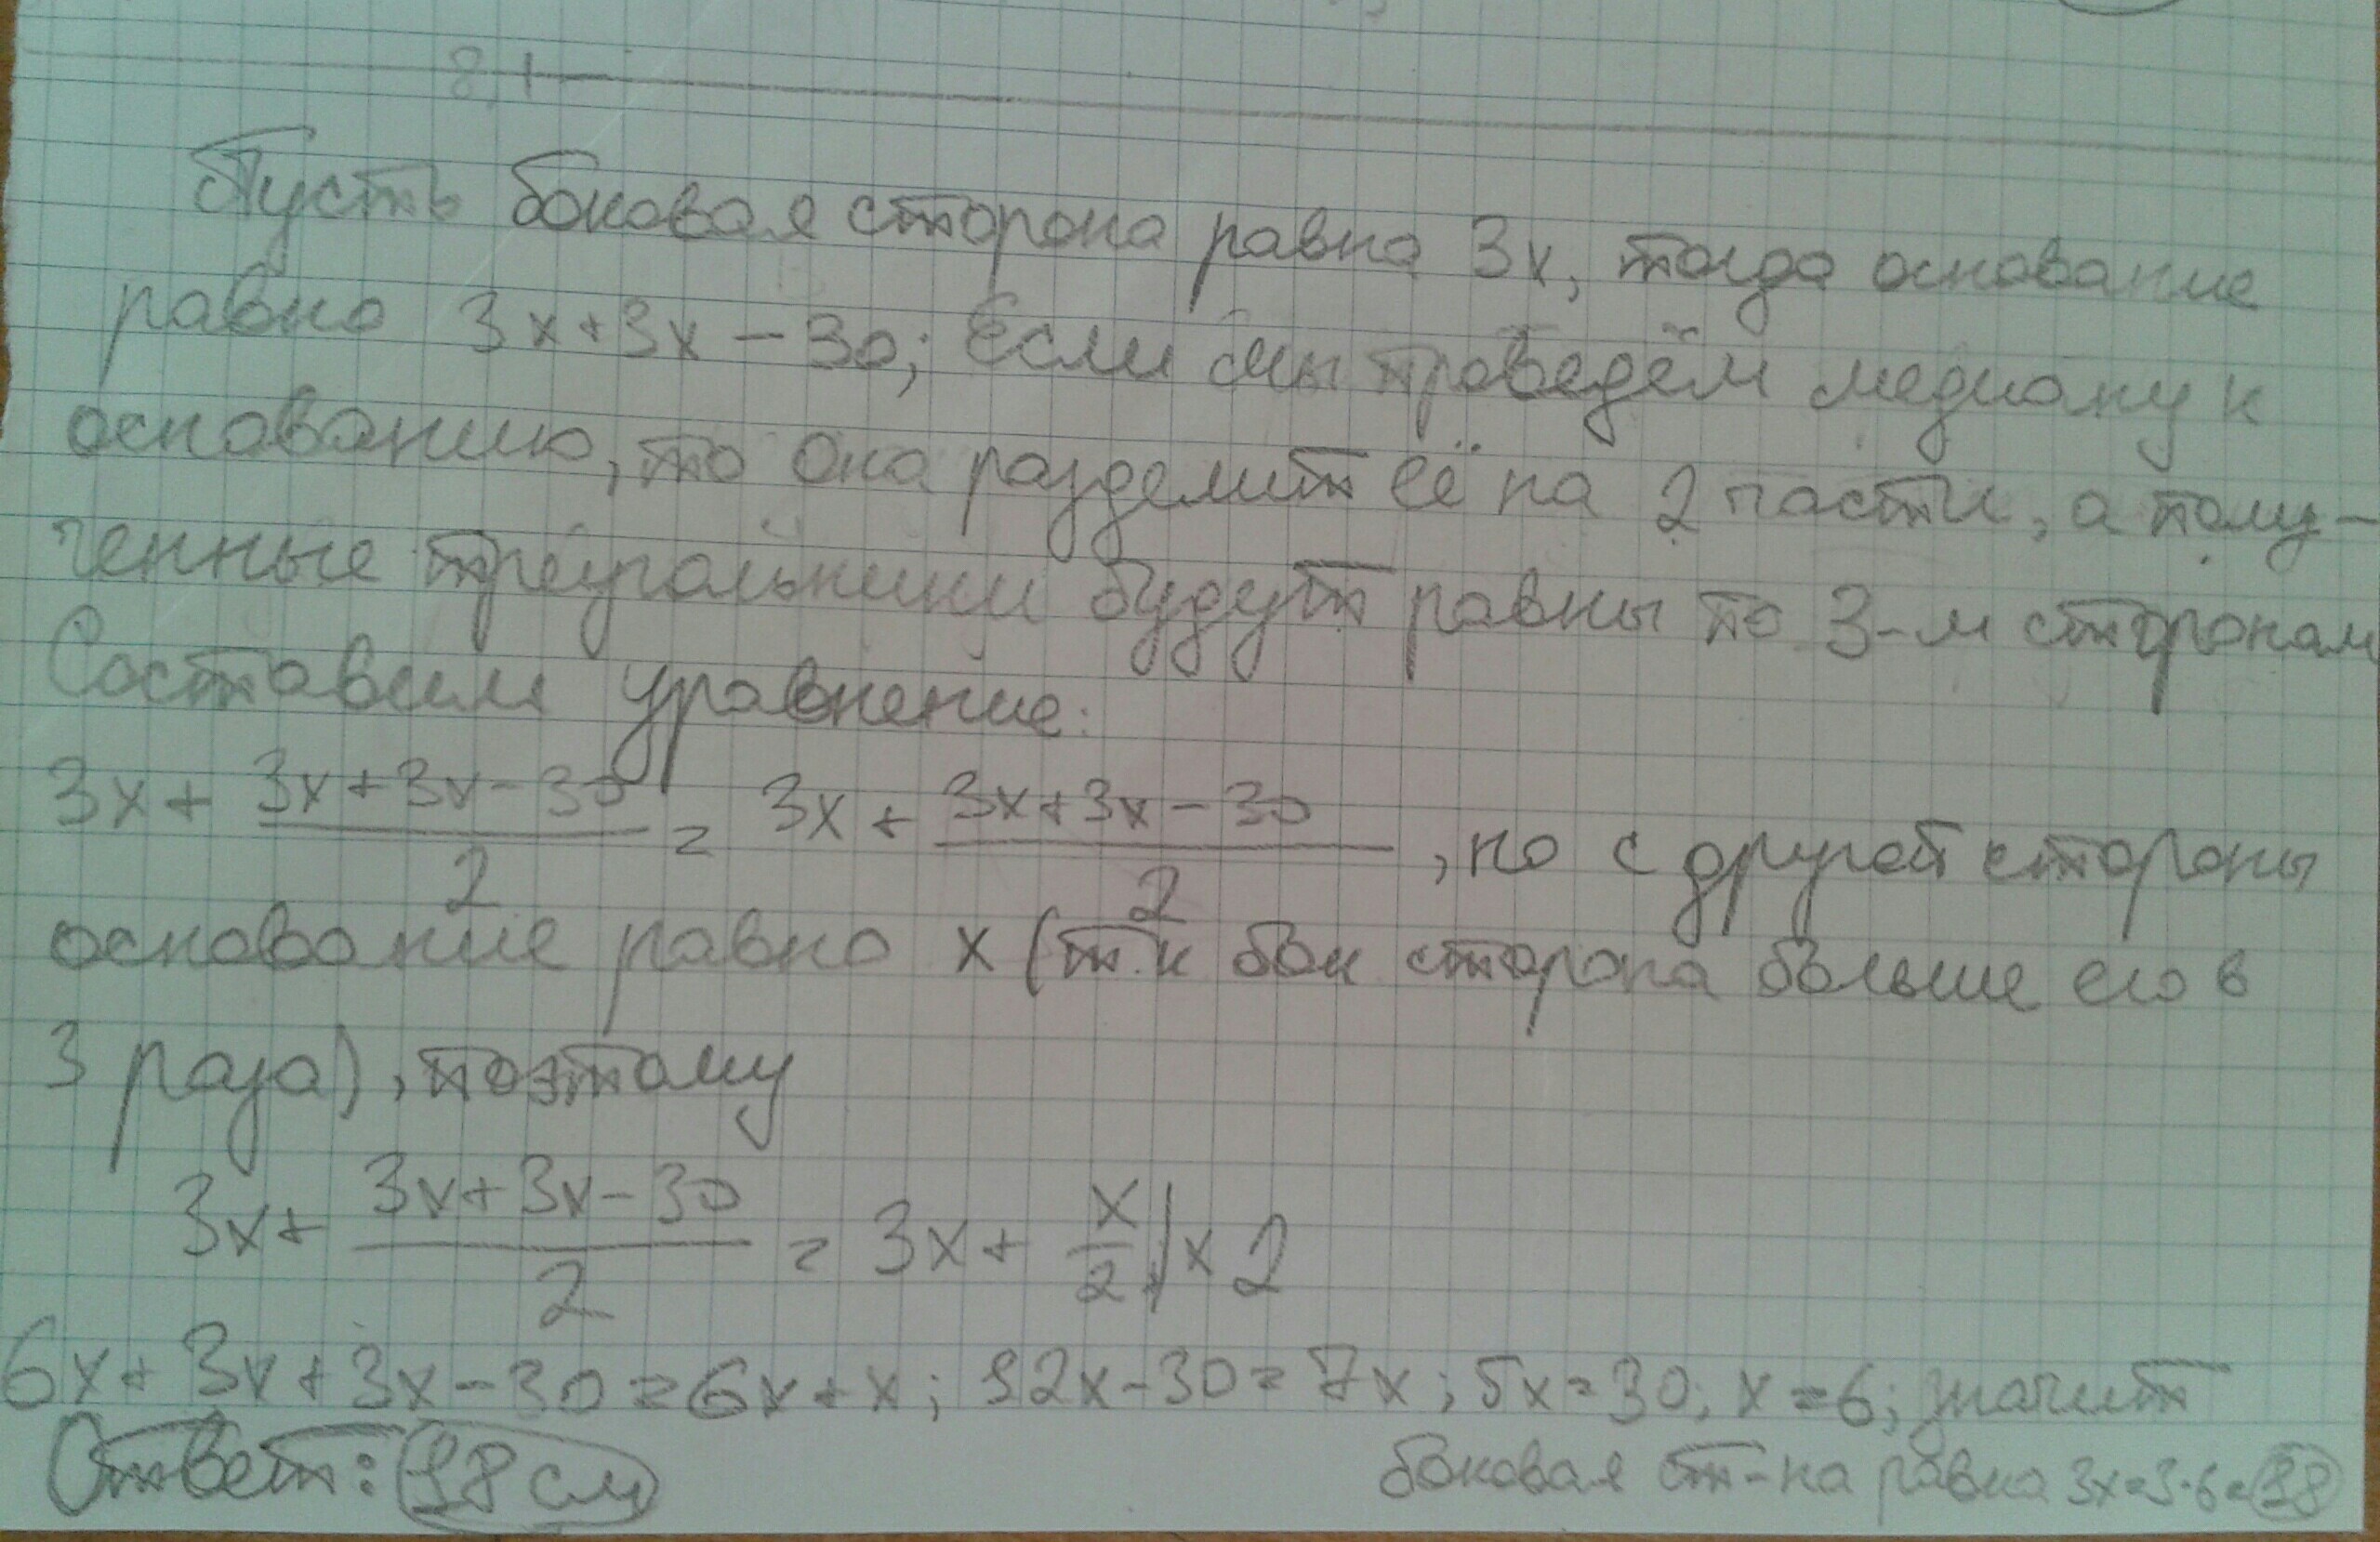 Пусть боковая сторона равна 3x, тогда основание
равно 3x+3x-30; Если мы проведём медиану к
основанию, то она разделит её на 2 части, а полу-
ченные треугольники будут равны по 3-м сторонам
Составим уравнение:
3x+ (3x+3x-30)/2 = 3x+ (3x+3x-30)/2, но с другой стороны
основание равно x (т.к бок сторона больше его в
3 раза), поэтому
3x+ (3x+3x-30)/2 = 3x+ x/2 | ×2
6x+3x+3x-30=6x+x; 12x-30=7x; 5x=30; x=6; значит
боковая ст-на равна 3x=3·6=18
Ответ: 18 см